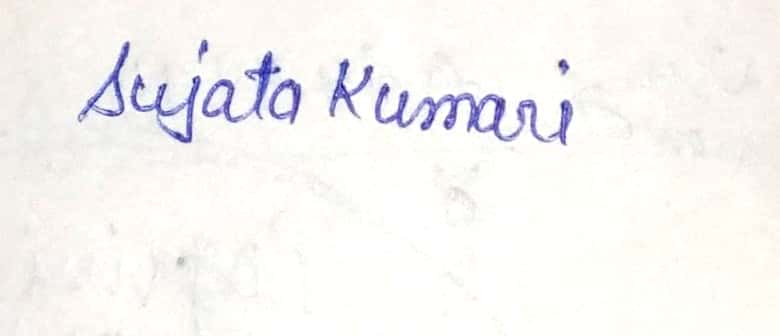 Sujata Kumari